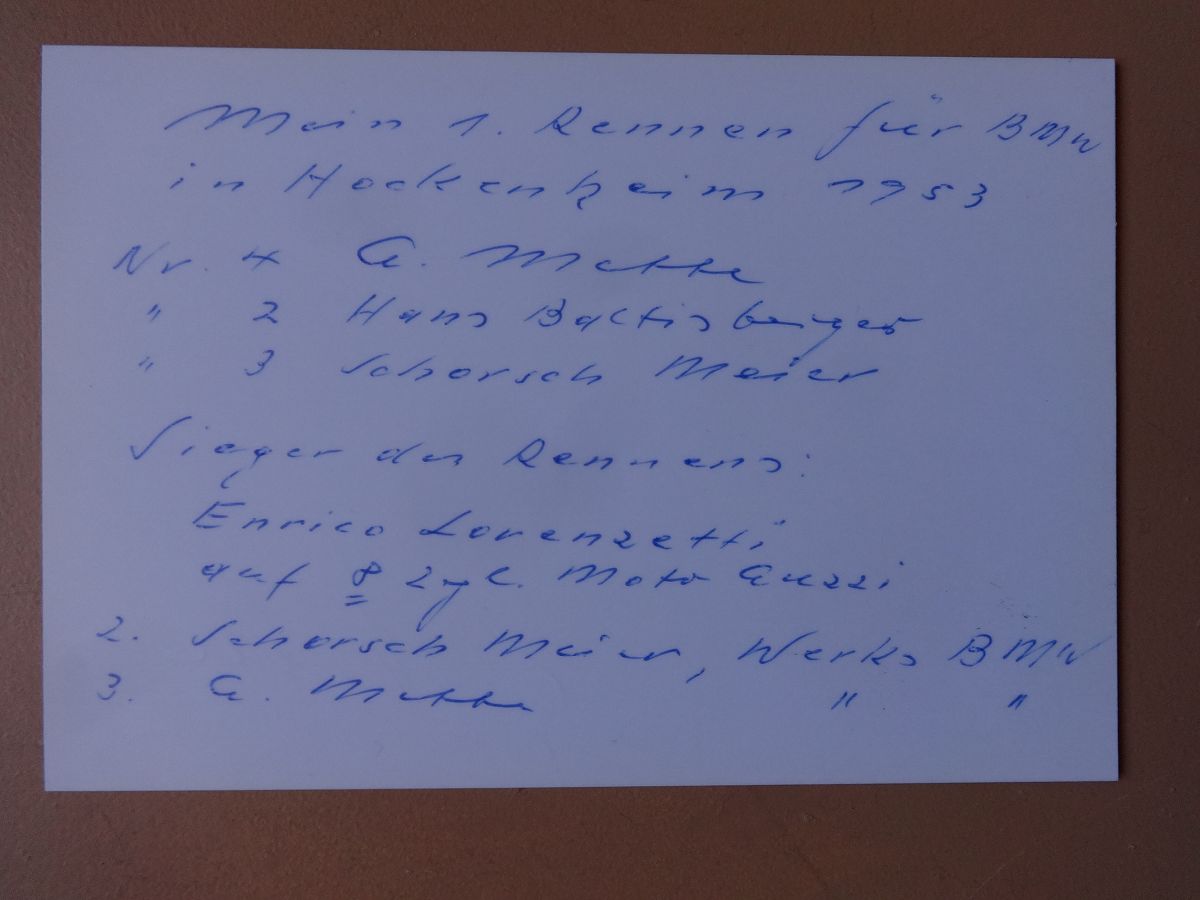 Mein 1. Rennen für BMW
in Hockenheim 1953
Nr. 4 G. Mette
" 2 Hans Baltisberger
" 3 Schorsch Meier
Sieger des Rennens:
Enrico Lorenzetti
auf 8 Zyl. Moto Guzzi
2. Schorsch Meier, Werks BMW
3. G. Mette " "